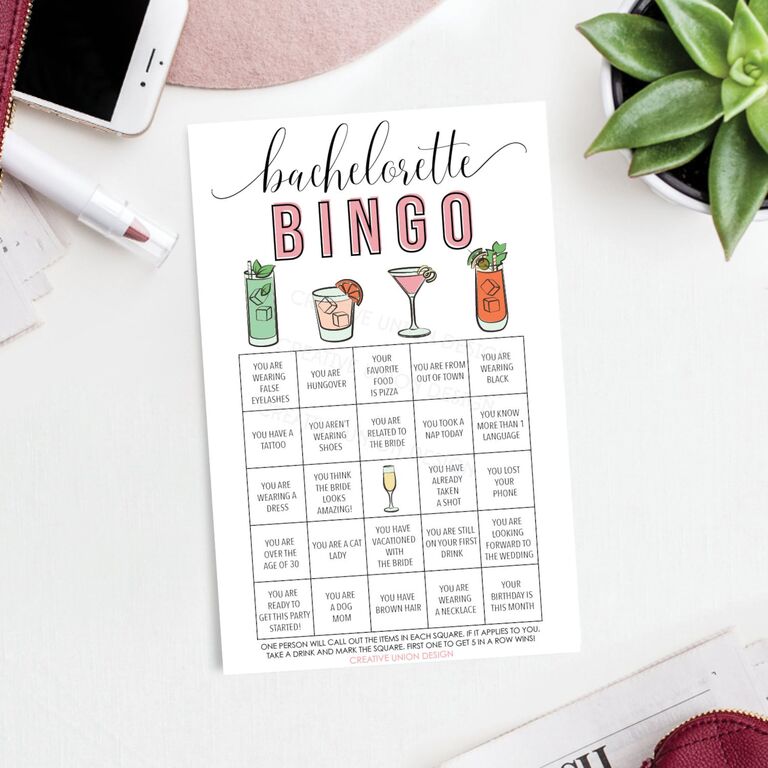 bachelorette
BINGO
CREATIVE UNION DESIGN
CREATIVE UNION DESIGN
YOU ARE
WEARING
FALSE
EYELASHES
YOU ARE
HUNGOVER
YOUR
FAVORITE
FOOD
IS PIZZA
YOU ARE FROM
OUT OF TOWN
YOU ARE
WEARING
BLACK
YOU HAVE A
TATTOO
YOU AREN'T
WEARING
SHOES
YOU ARE
RELATED TO
THE BRIDE
YOU TOOK A
NAP TODAY
YOU KNOW
MORE THAN 1
LANGUAGE
YOU ARE
WEARING A
DRESS
YOU THINK
THE BRIDE
LOOKS
AMAZING!
YOU HAVE
ALREADY
TAKEN
A SHOT
YOU LOST
YOUR
PHONE
YOU ARE
OVER THE
AGE OF 30
YOU ARE A CAT
LADY
YOU HAVE
VACATIONED
WITH
THE BRIDE
YOU ARE STILL
ON YOUR FIRST
DRINK
YOU ARE
LOOKING
FORWARD TO
THE WEDDING
YOU ARE
READY TO
GET THIS PARTY
STARTED!
YOU ARE
A DOG
MOM
YOU HAVE
BROWN HAIR
YOU ARE
WEARING
A NECKLACE
YOUR
BIRTHDAY IS
THIS MONTH
ONE PERSON WILL CALL OUT THE ITEMS IN EACH SQUARE. IF IT APPLIES TO YOU,
TAKE A DRINK AND MARK THE SQUARE. FIRST ONE TO GET 5 IN A ROW WINS!
CREATIVE UNION DESIGN